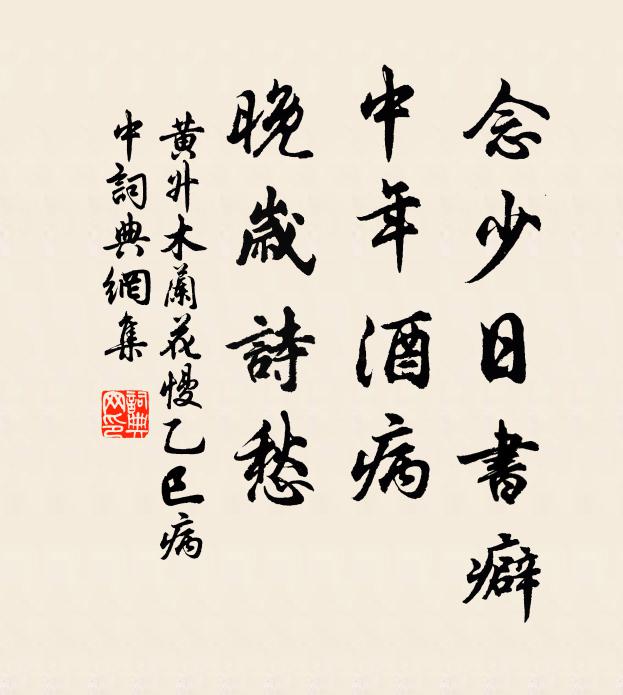 念少日書癖
中年酒病
晚歲詩愁
黃升木蘭花慢乙巳病
中詞典網集
詞典
网印